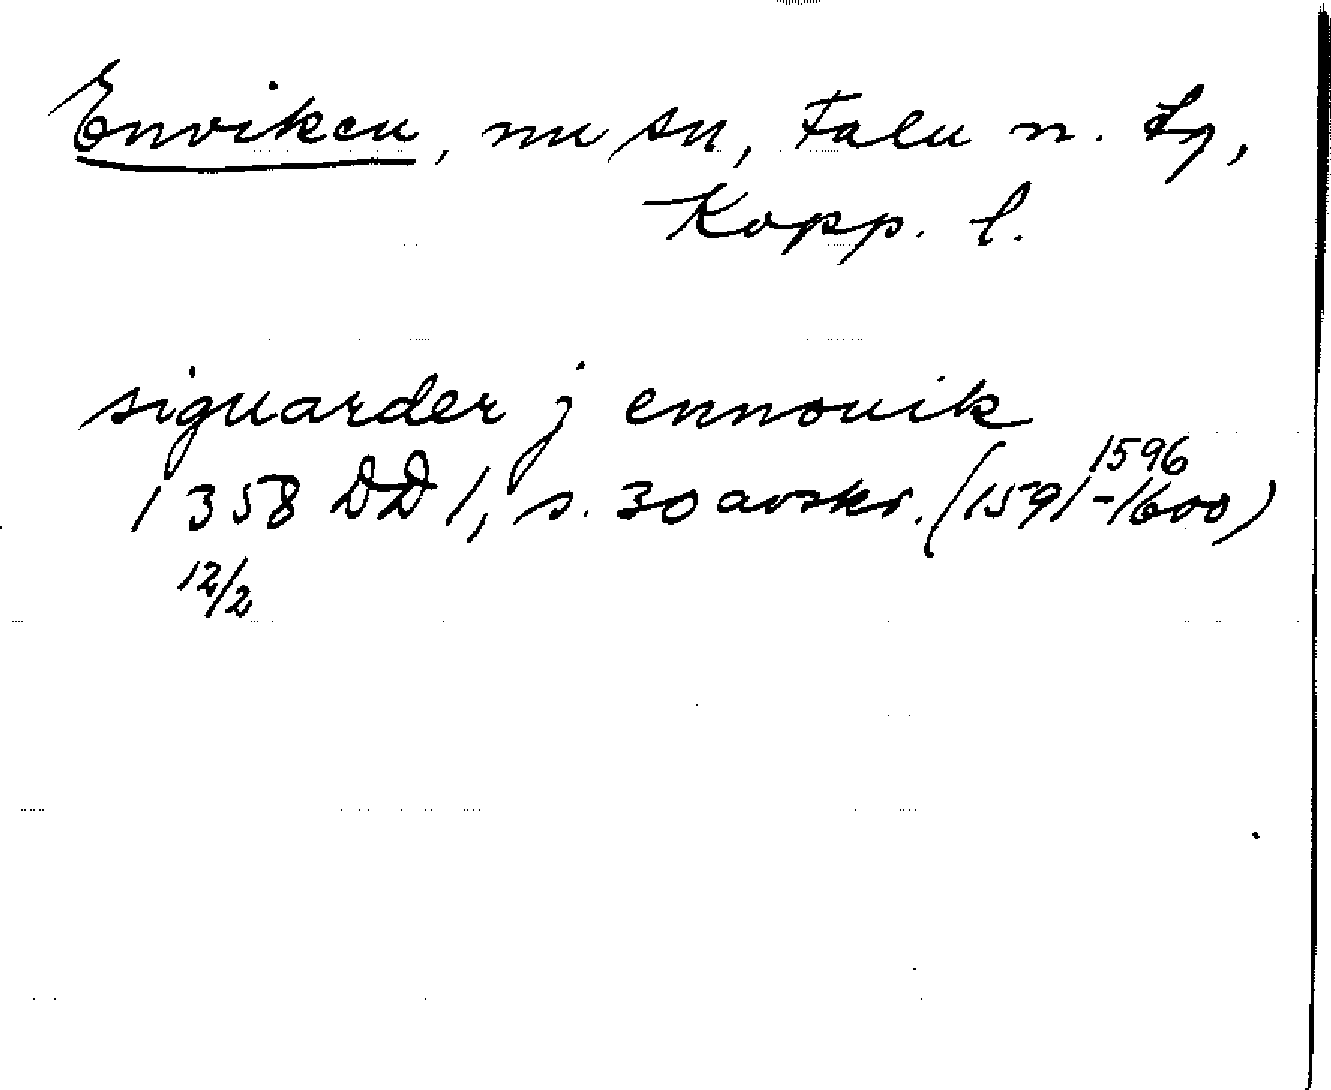 Enviken, nu sn, Falu n. tg,
Kopp. l.
siguarder j ennouik
1596
1358 DD 1, s. 30 avskr. (1591-1600)
12/2